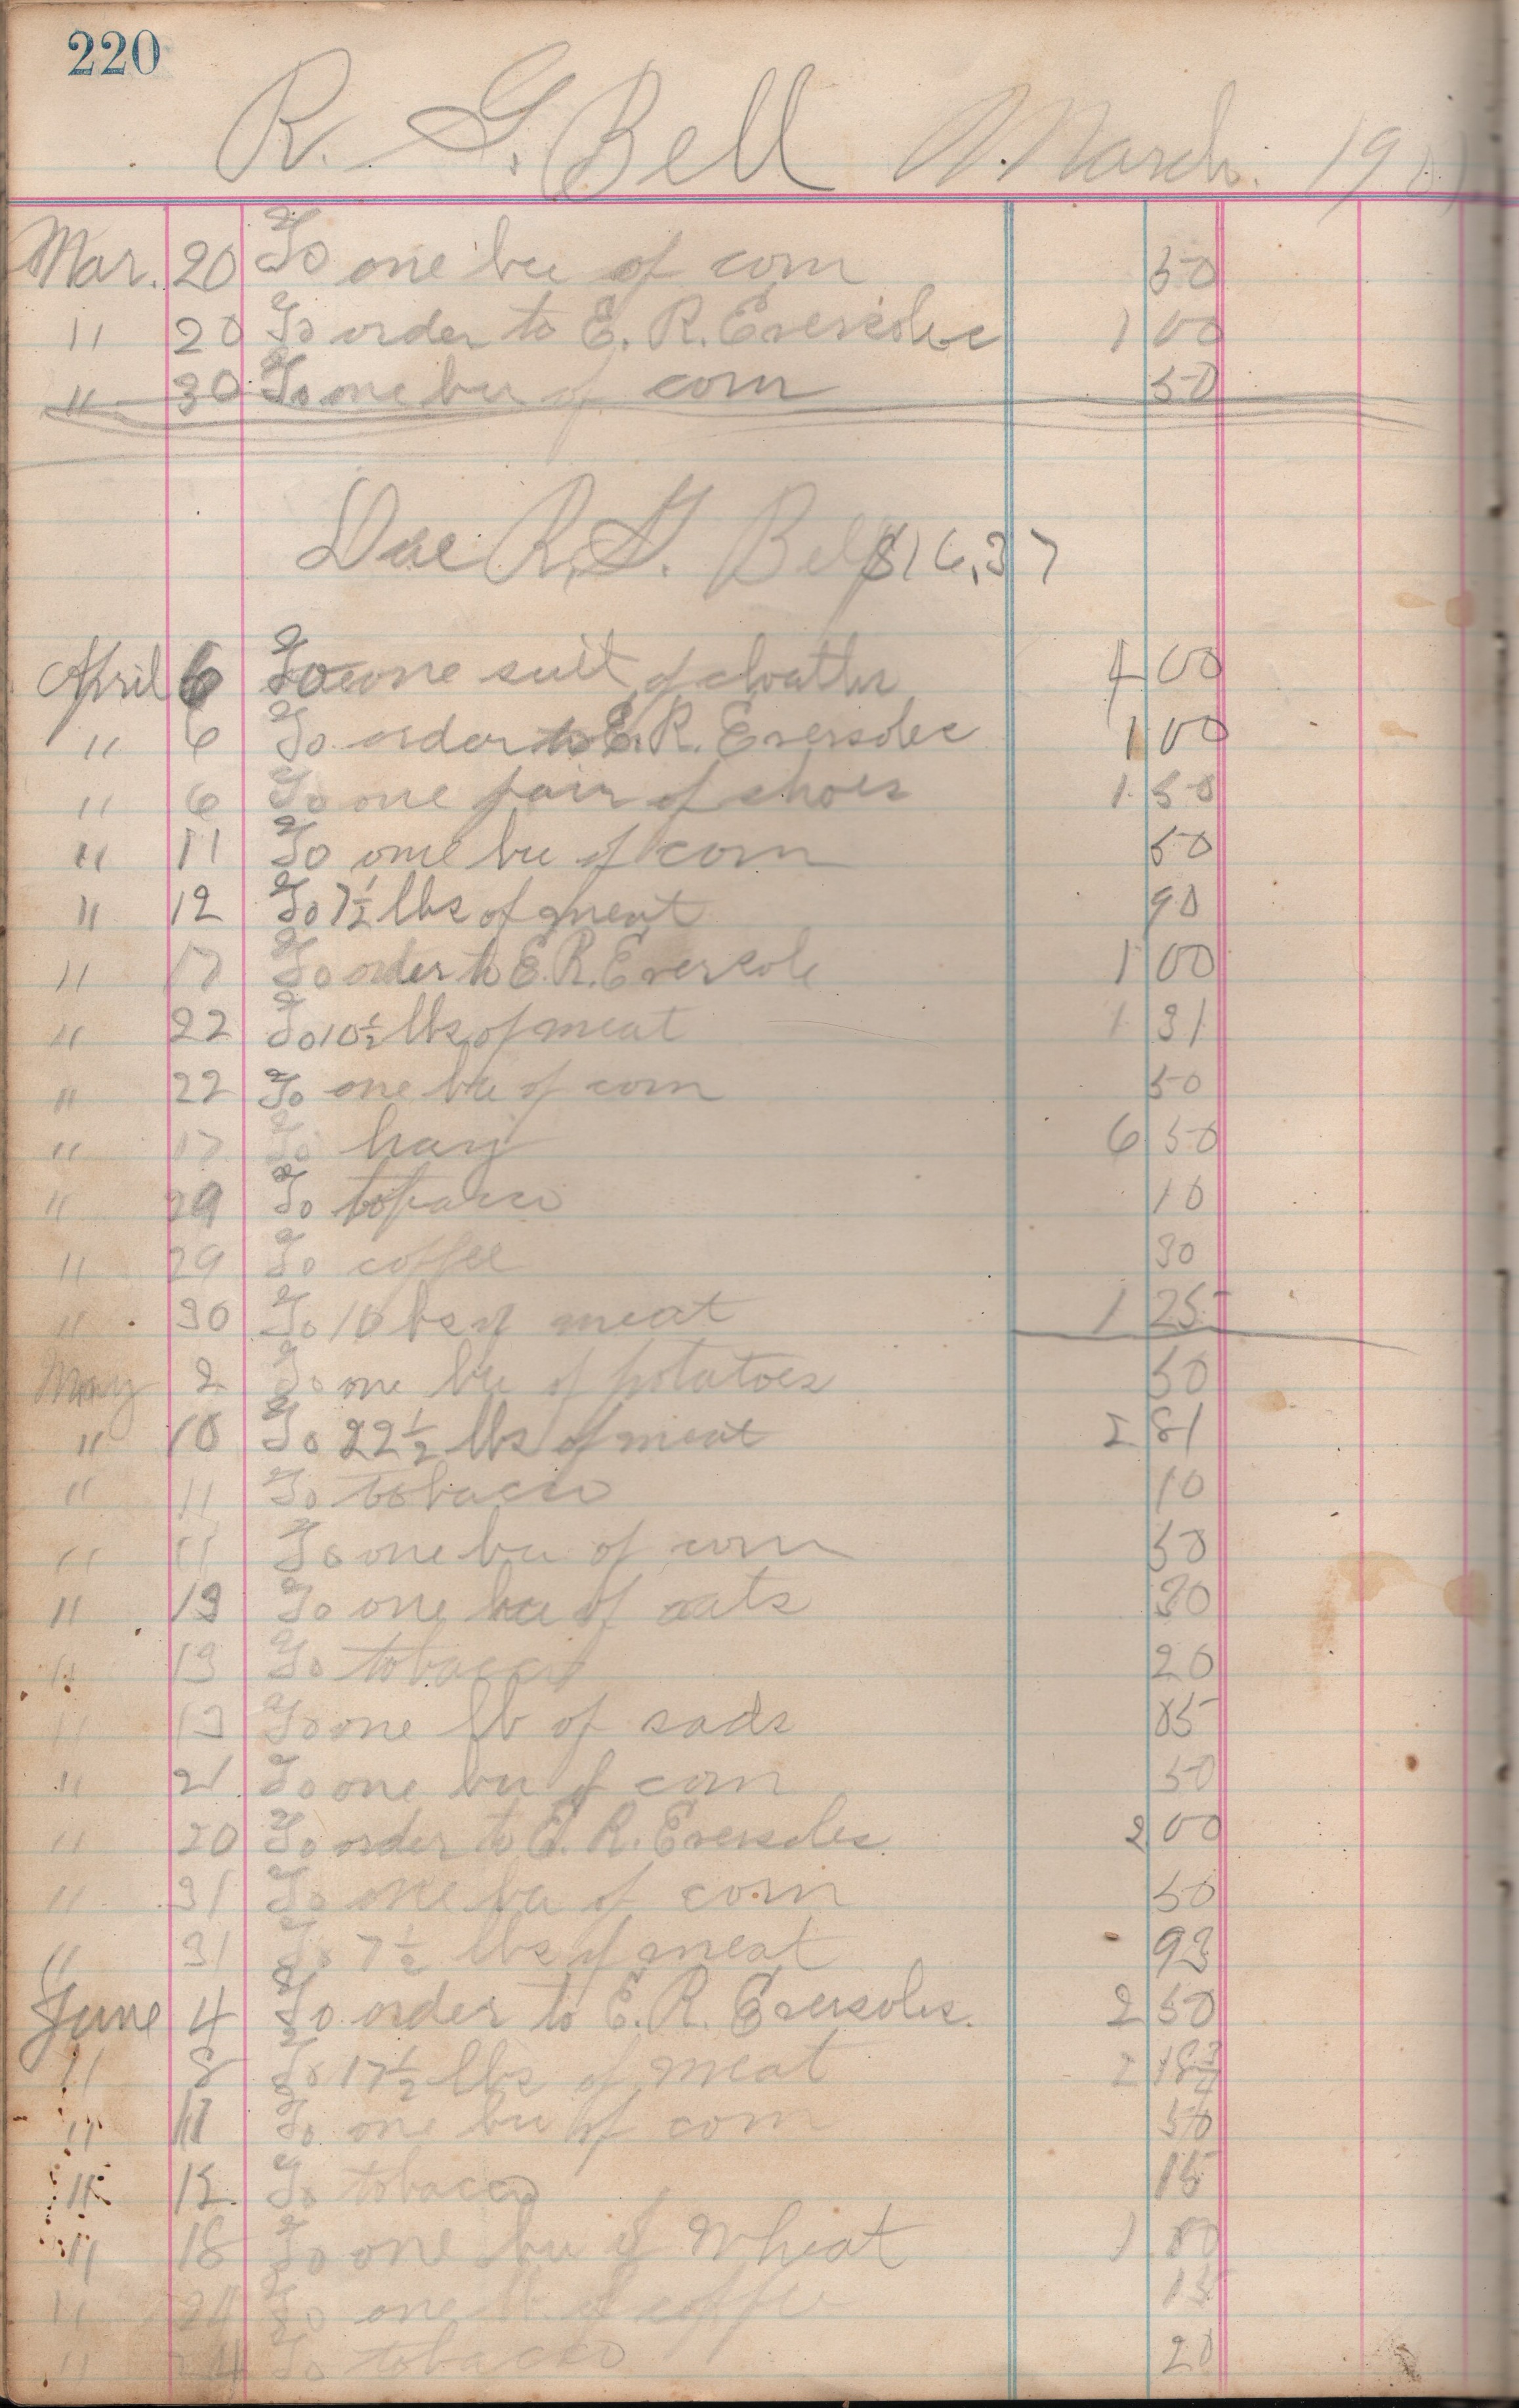 220
R. G. Bell March. 190
Mar. 20 To one bu of corn 50
" 20 To order to E. R. Eversoles 1 00
" 30 To one bu of corn 50
Due R. G. Bell $16,37
April 6 To one suit of cloathes 4 00
" 6 To order to E. R. Eversoles 1 00
" 6 To one pair of shoes 1 50
" 11 To one bu of corn 50
" 12 To 7½ lbs of meat 90
" 17 To order to E. R. Eversole 1 00
" 22 To 10½ lbs of meat 1 31
" 22 To one bu of corn 50
" 17 To hay 6 50
" 29 To tobacco 10
" 29 To coffee 30
" 30 To 10 lbs of meat 1 25
May 2 To one bu of potatoes 50
" 10 To 22½ lbs of meat 2 81
" 11 To tobacco 10
" 11 To one bu of corn 50
" 13 To one bu of oats 30
" 13 To tobacco 20
" 13 To one lb of soda 05
" 21 To one bu of corn 50
" 20 To order to E. R. Eversoles 2 00
" 31 To one bu of corn 50
" 31 To 7½ lbs of meat 93
June 4 To order to E. R. Eversoles. 2 50
" 8 To 17½ lbs of meat 2 18¾
" 11 To one bu of corn 50
" 12 To tobacco 15
" 18 To one bu of Wheat 1 00
" 24 To one lb of coffee 15
" To tobacco 20